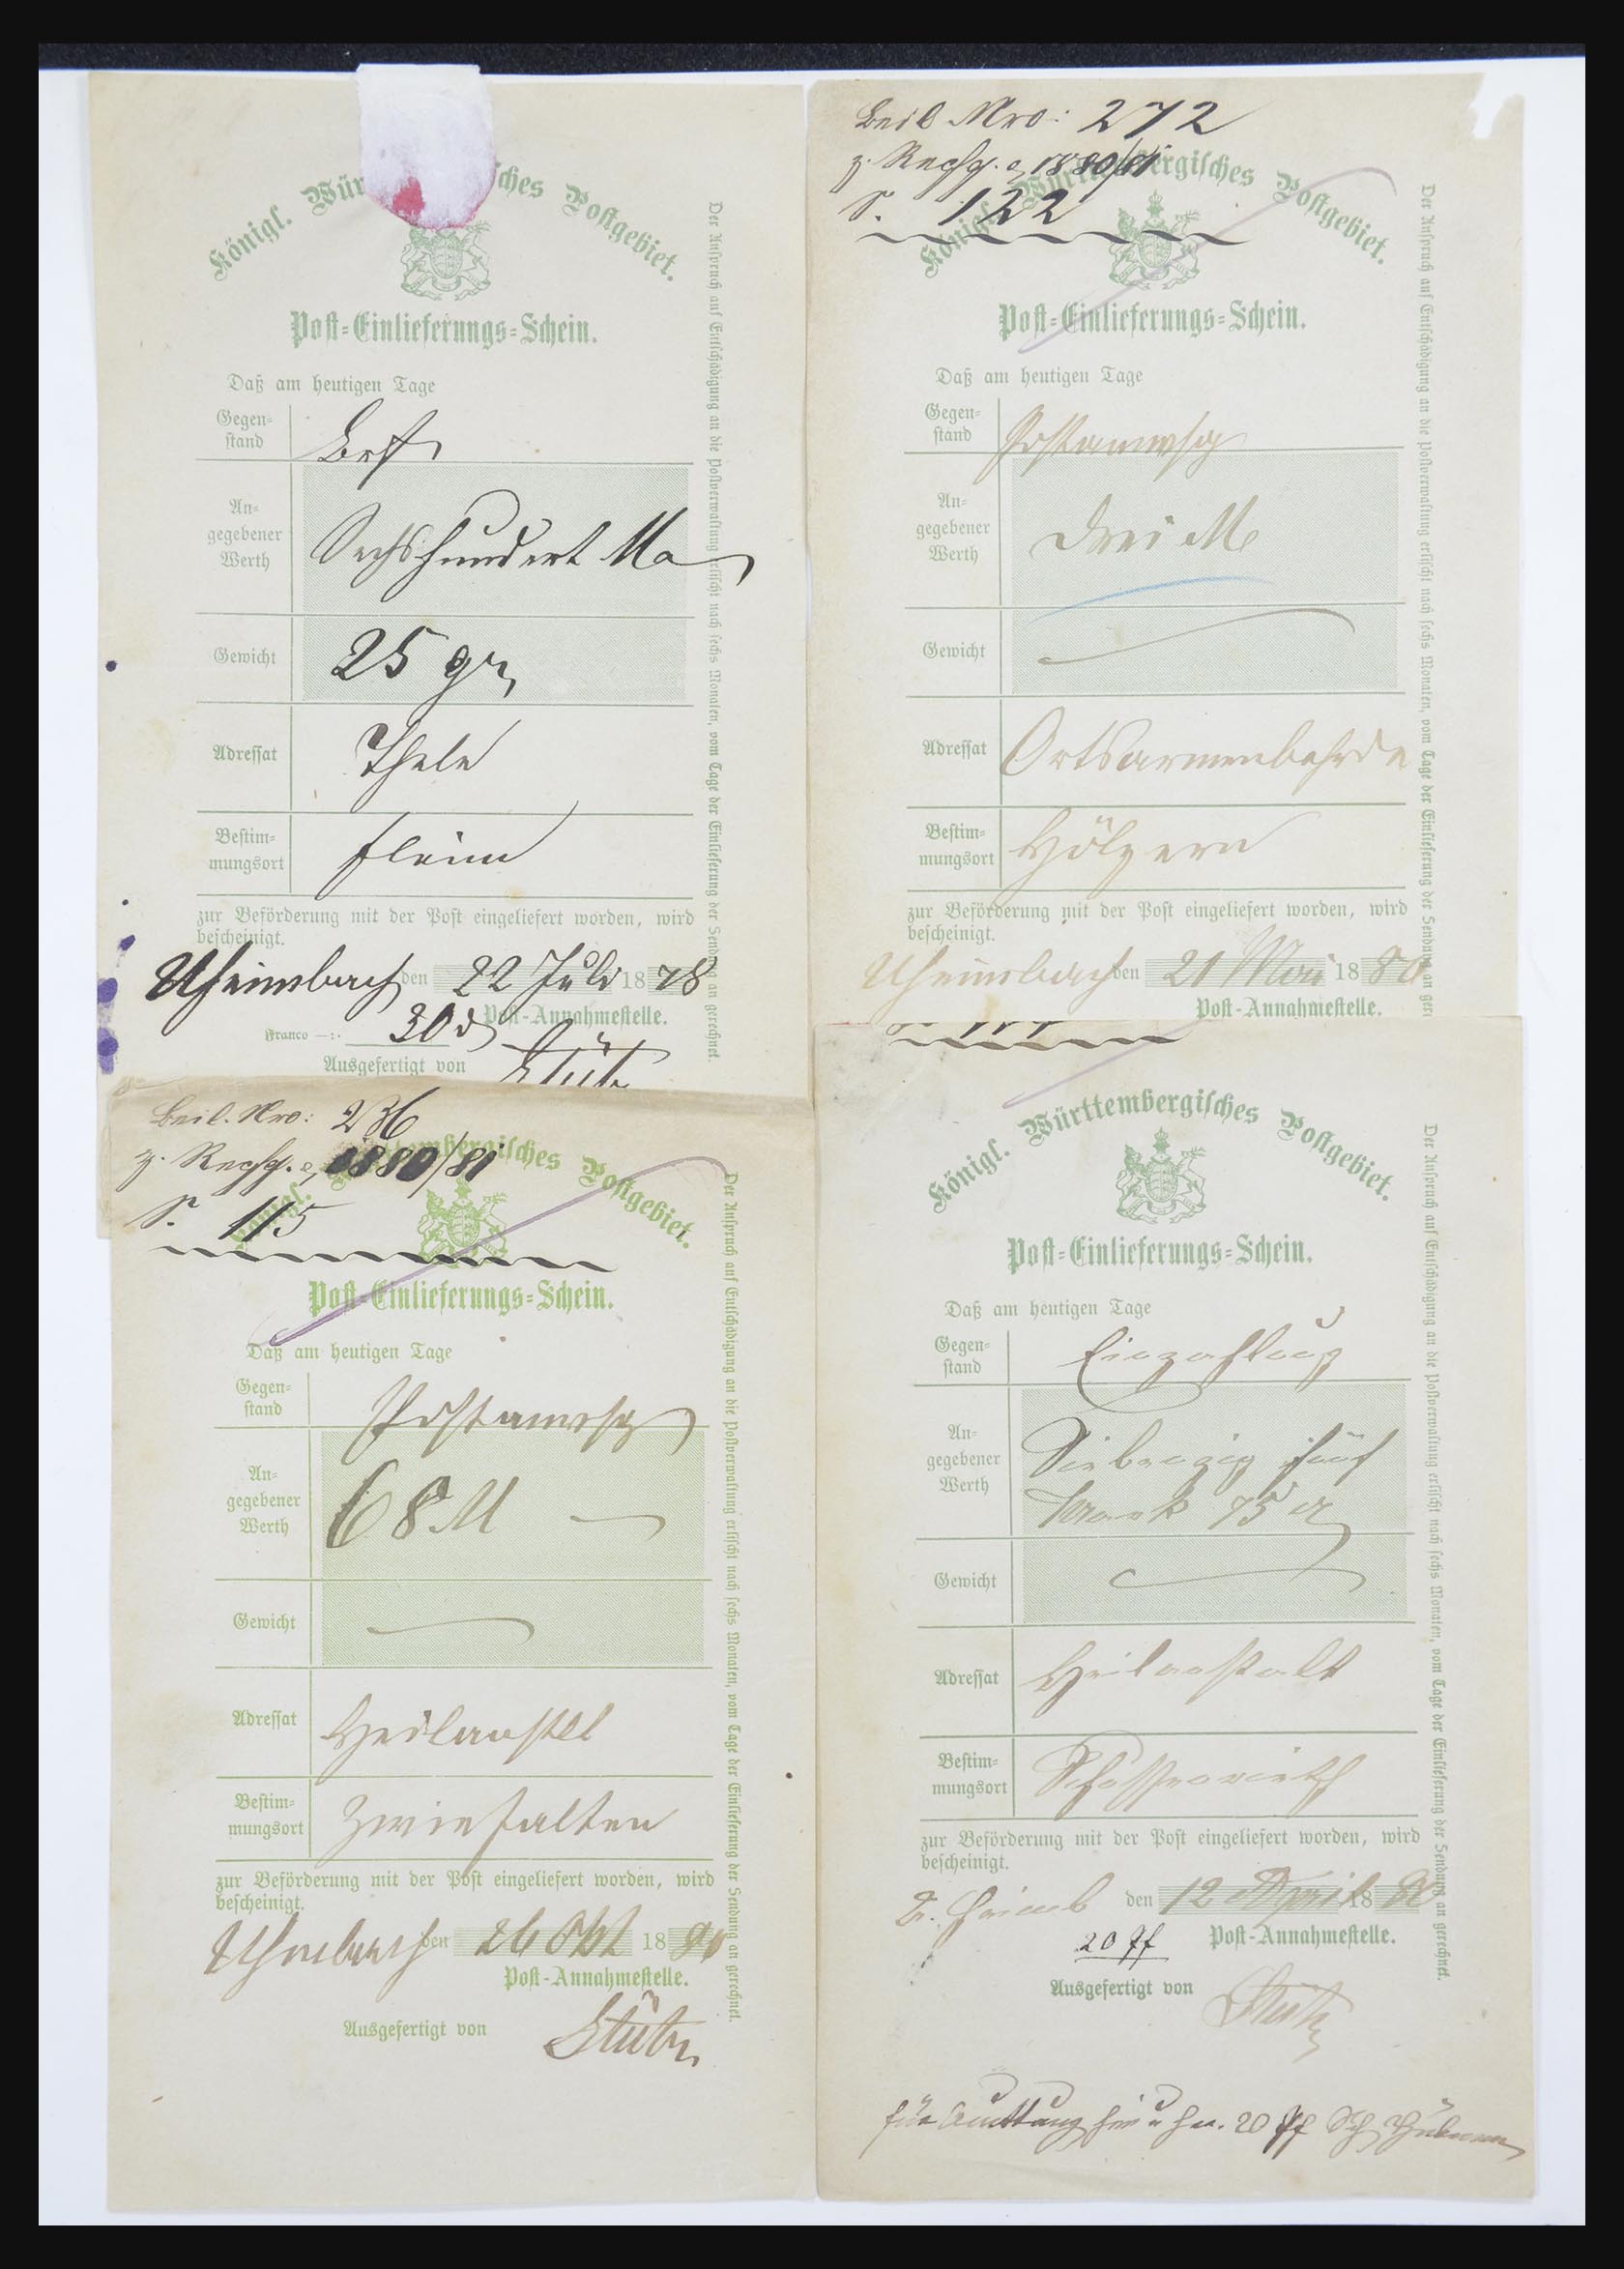 Königl. Würt ches Postgebiet.
Post-Einlieferungs-Schein.
Daß am heutigen Tage
Gegen-
stand
Brf
An-
gegebener
Werth
Sechshundert Ma
Gewicht
25 gr
Adressat
Thele
Bestim-
mungsort
Flein
zur Beförderung mit der Post eingeliefert worden, wird
bescheinigt.
Uheimbach den 22 Juli 1878
Post-Annahmestelle.
Franco 30
Ausgefertigt von
Stütz
Der Anspruch auf Entschädigung an die Postverwaltung erlischt nach sechs Monaten, vom Tage der Einlieferung der Sendung an gerechnet.
Beil. Nro: 272
z. Rechg. 1880/81
S. 122
Königl. Württembergisches Postgebiet.
Post-Einlieferungs-Schein.
Daß am heutigen Tage
Gegen-
stand
Postanwsg
An-
gegebener
Werth
Drei M
Gewicht
Adressat
Ortsarmenbehrde
Bestim-
mungsort
Hölzern
zur Beförderung mit der Post eingeliefert worden, wird
bescheinigt.
Uheimbach den 21 Mai 1880
Post-Annahmestelle.
Der Anspruch auf Entschädigung an die Postverwaltung erlischt nach sechs Monaten, vom Tage der Einlieferung der Sendung an ger
Beil. Nro: 236
z. Rechg. 1880/81
S. 115
Königl. tembergisches Postgebiet.
Post-Einlieferungs-Schein.
Daß am heutigen Tage
Gegen-
stand
Postanwsg
An-
gegebener
Werth
68 M
Gewicht
Adressat
Heilanstlt
Bestim-
mungsort
Zwiefalten
zur Beförderung mit der Post eingeliefert worden, wird
bescheinigt.
Uheimbach den 26 Okt 18
Post-Annahmestelle.
Ausgefertigt von
Stütz
Der Anspruch auf Entschädigung an die Postverwaltung erlischt nach sechs Monaten, vom Tage der Einlieferung der Sendung an gerechnet.
Königl. Württembergisches Postgebiet.
Post-Einlieferungs-Schein.
Daß am heutigen Tage
Gegen-
stand
Einzahlung
An-
gegebener
Werth
Siebenzig fünf
Mark 75
Gewicht
Adressat
Heilanstalt
Bestim-
mungsort
Schussenrieth
zur Beförderung mit der Post eingeliefert worden, wird
bescheinigt.
den 12 April 1880
20 Pf
Post-Annahmestelle.
Ausgefertigt von
Stütz
Der Anspruch auf Entschädigung an die Postverwaltung erlischt nach sechs Monaten, vom Tage der Einlieferung der Sendung an gerechnet.
für Quittung 20 Pf